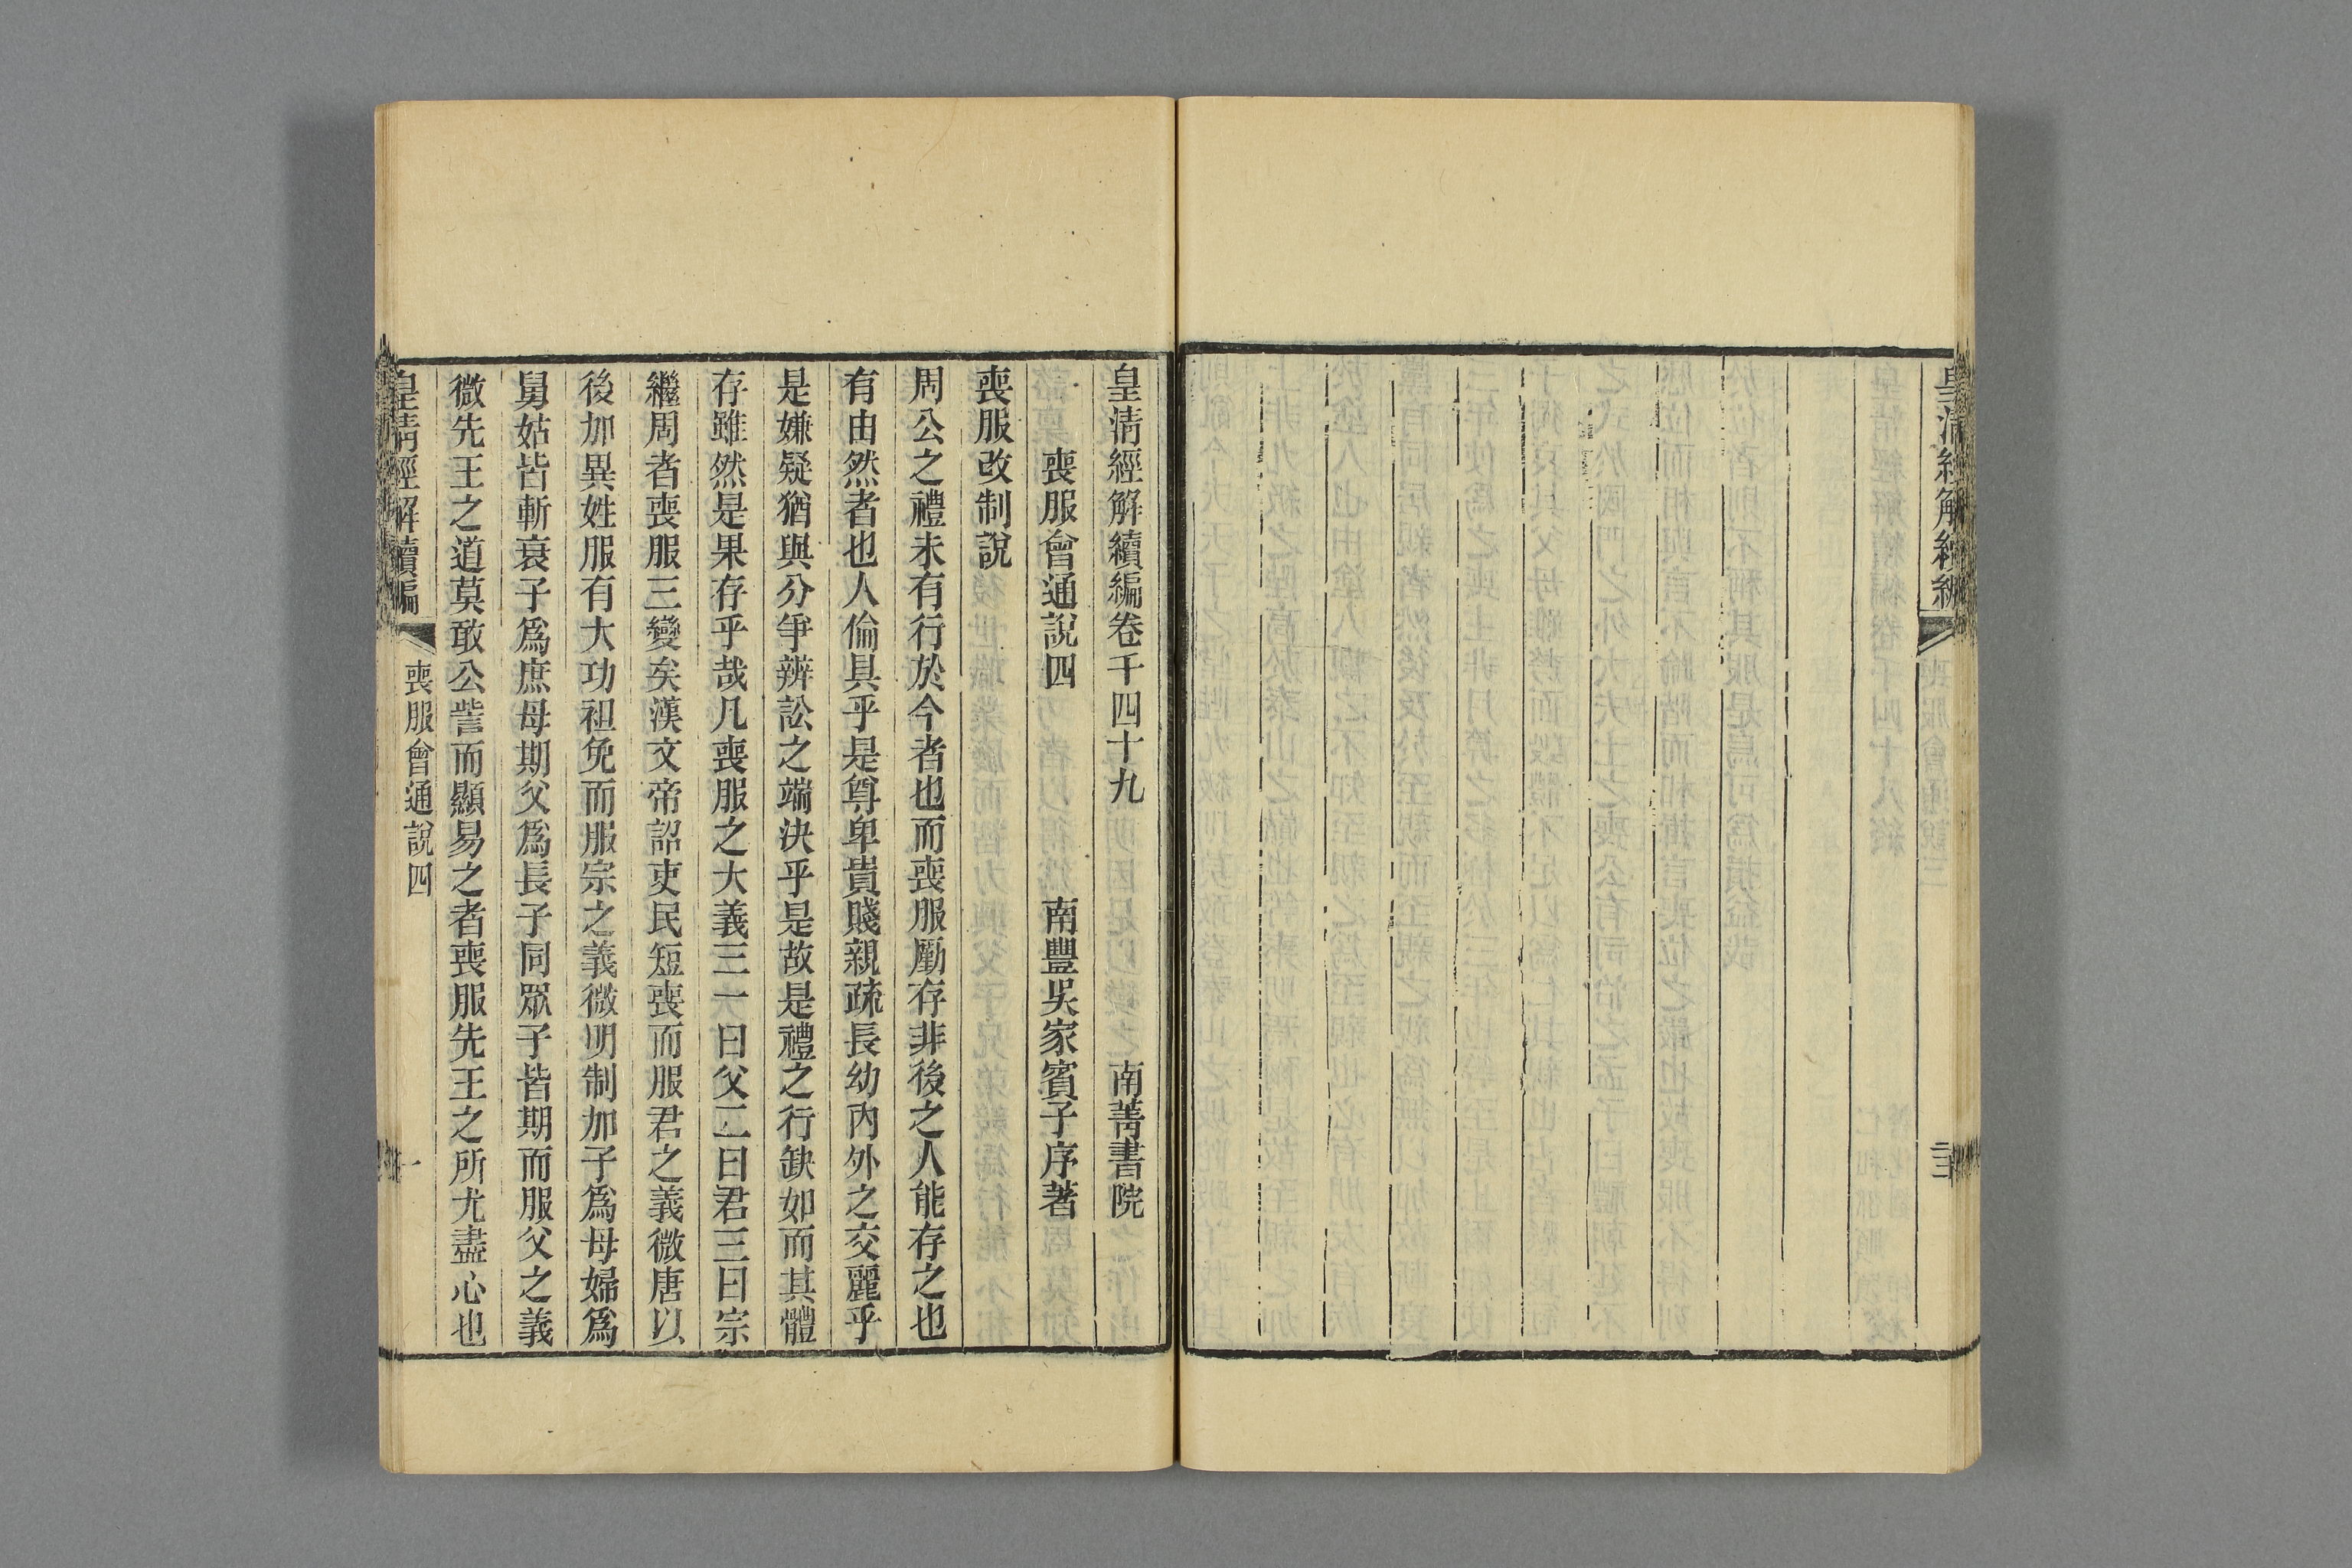 皇清經解續編
皇清經解續編卷千四十九 南菁書院
喪服會通說四 南豐吳家賓子序著
喪服改制說
周公之禮未有行於今者也而喪服勵存非後之人能存之也
有由然者也人倫具乎是尊卑貴賤親疏長幼內外之交麗乎
是嫌疑猶與分爭辨訟之端決乎是故是禮之行缺如而其體
存雖然是果存乎哉凡喪服之大義三一曰父二曰君三曰宗
繼周者喪服三變矣漢文帝詔吏民短喪而服君之義微唐以
後加異姓服有大功袒免而服宗之義微明制加子爲母婦爲
舅姑皆斬衰子爲庶母期父爲長子同眾子皆期而服父之義
微先王之道莫敢公訾而顯易之者喪服先王之所尤盡心也
皇清經解續編 喪服會通說四 一